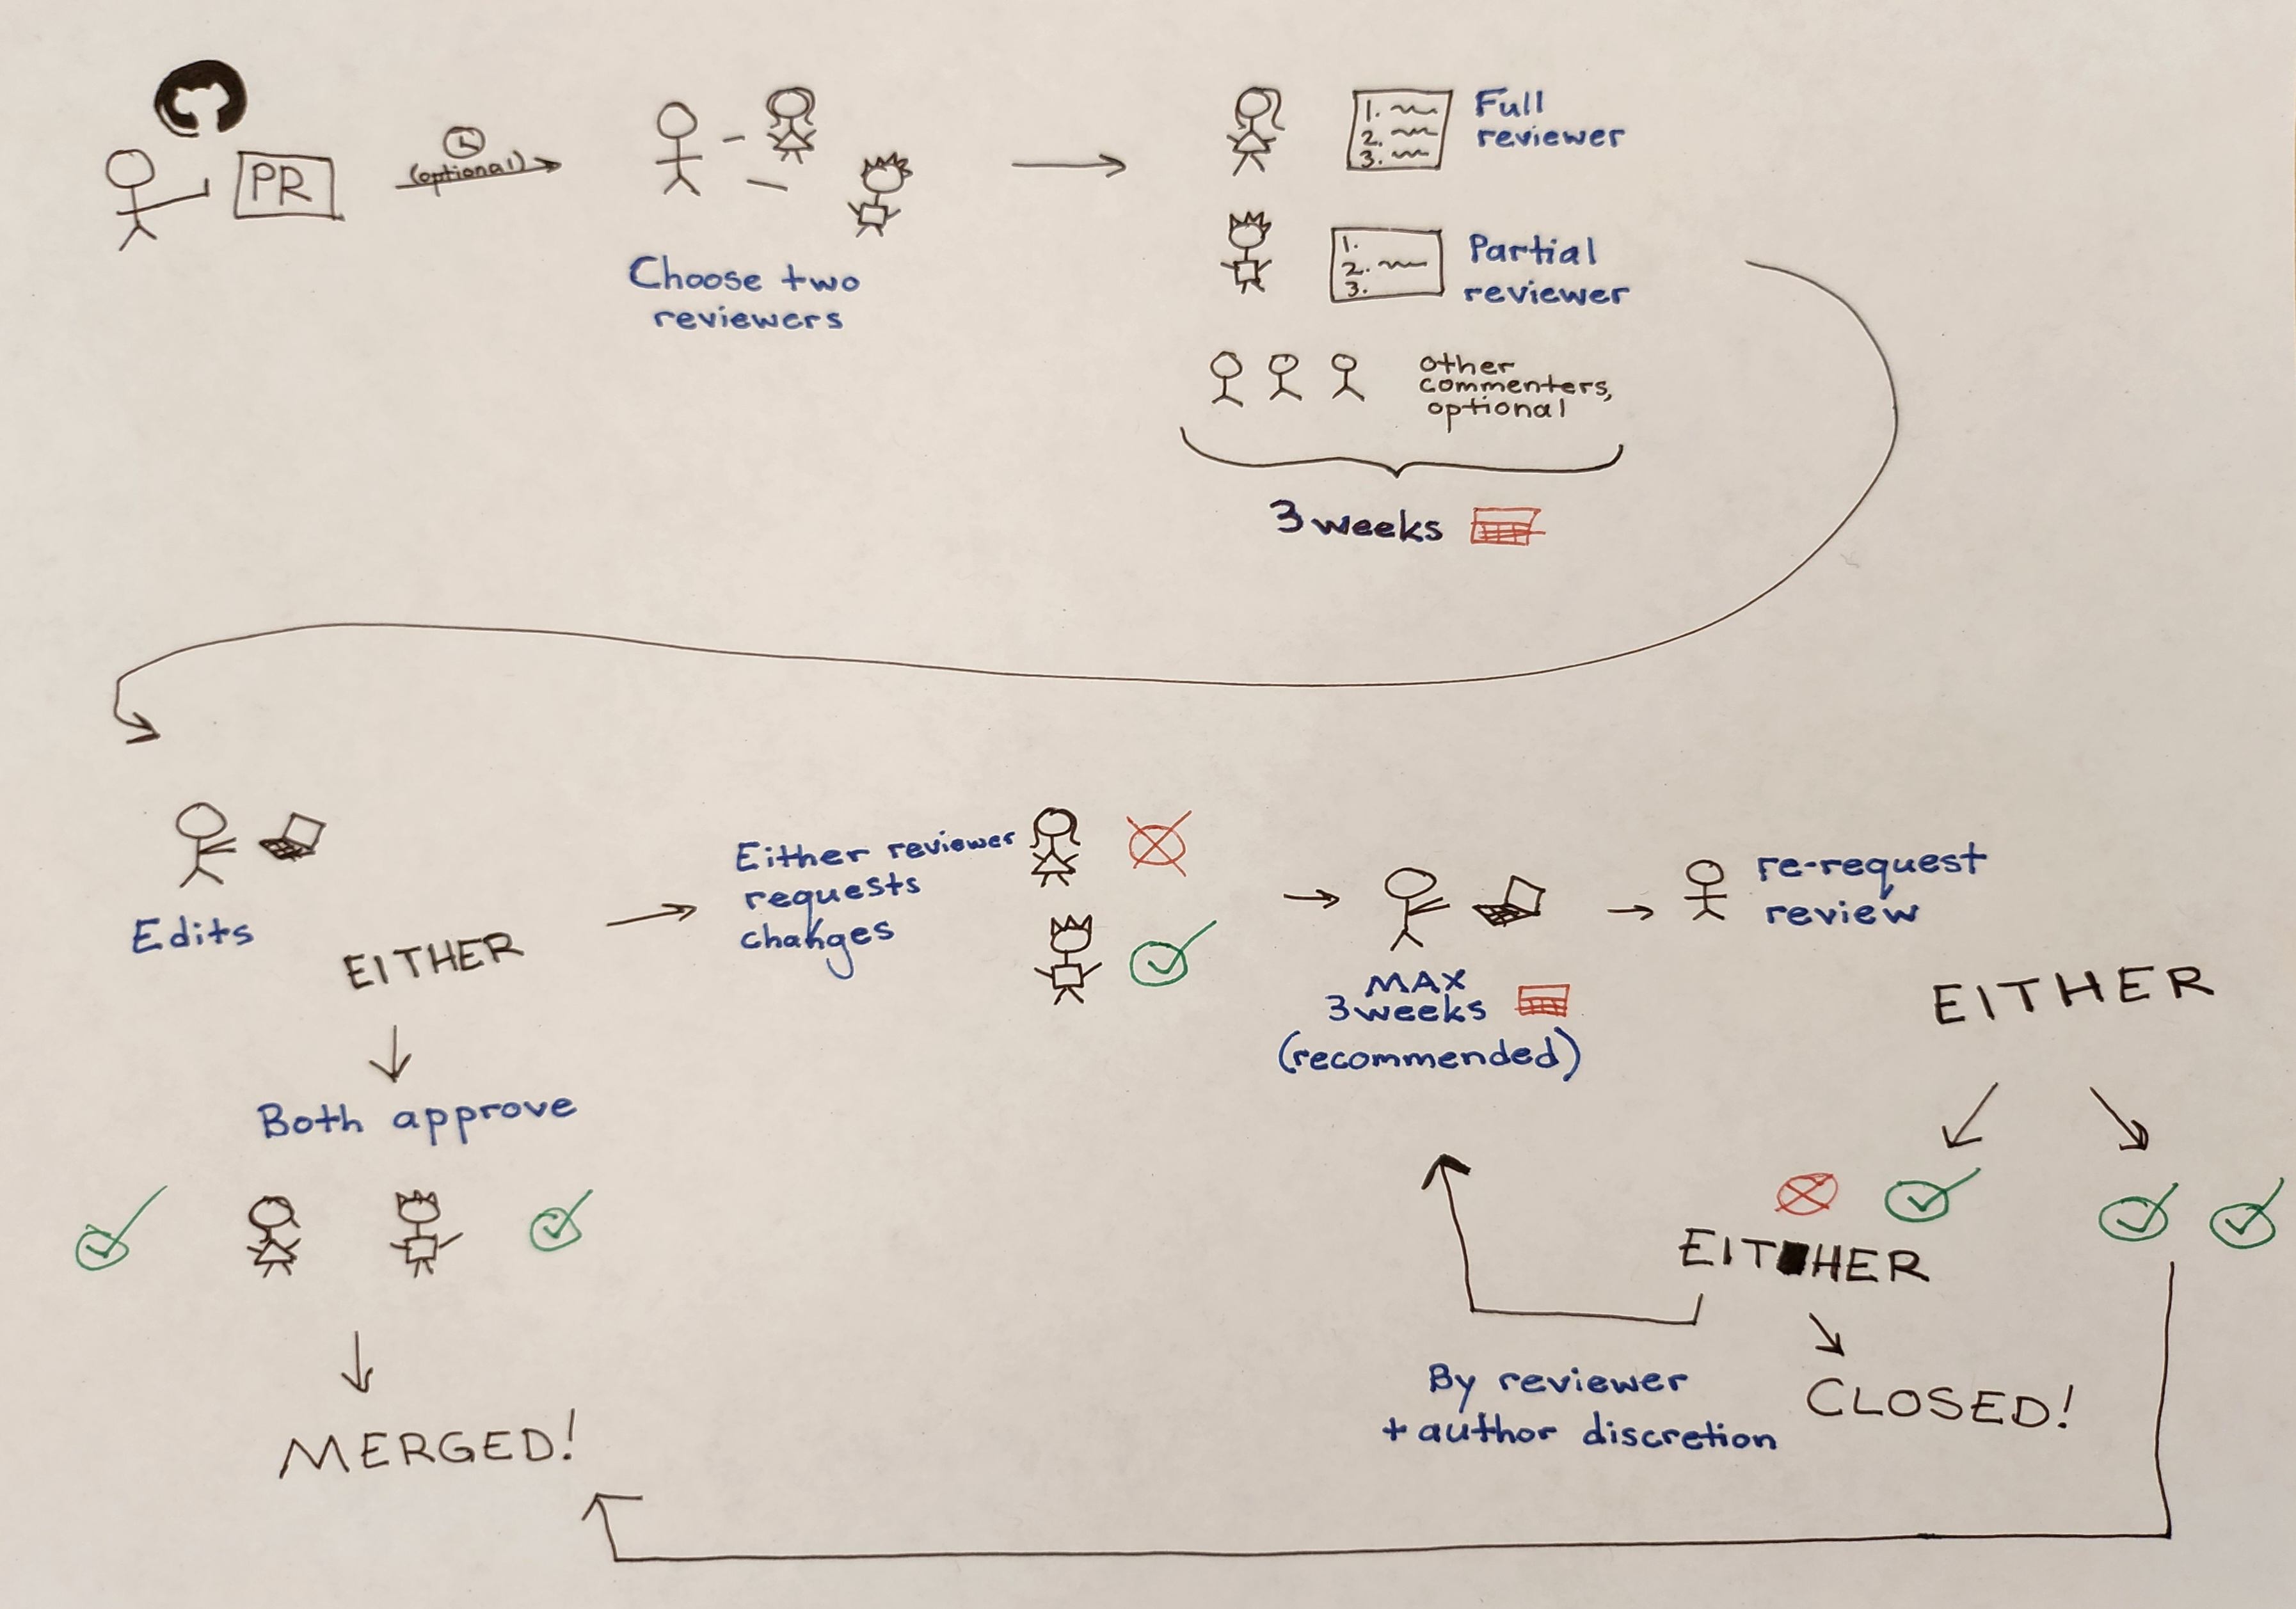 PR
(optional)
Choose two
reviewers
1.
2.
3.
Full
reviewer
1.
2.
3.
Partial
reviewer
other
commenters,
optional
3 weeks
Edits
EITHER
Either reviewer
requests
changes
MAX
3 weeks
(recommended)
re-request
review
EITHER
Both approve
MERGED!
EITHER
By reviewer
+ author discretion
CLOSED!